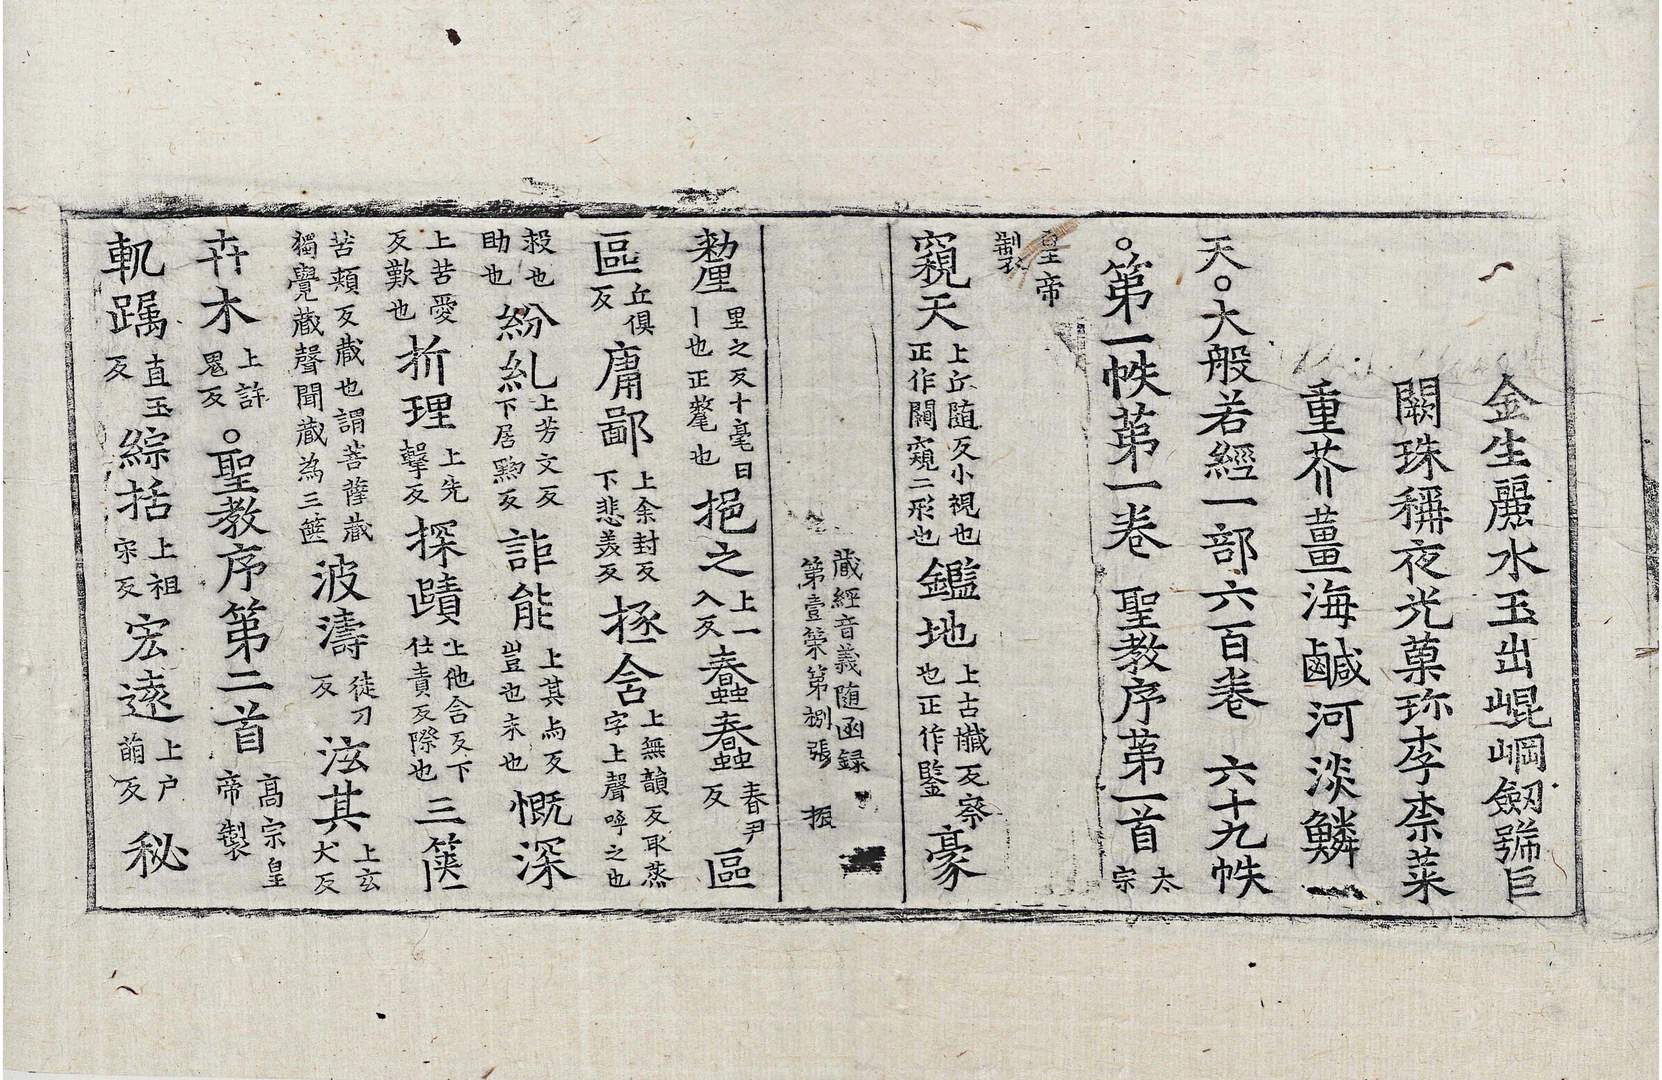 金生麗水玉出崐崗劒號巨
闕珠稱夜光菓珎李柰菜
重芥薑海鹹河淡鱗
天。大般若經一部六百卷 六十九帙
。第一帙第一卷 聖教序第一首 太宗
皇帝製
窺天 上丘随反小視也正作闚窺二形也 鑑地 上古懴反察也正作鑒 豪
藏經音義随函録
第壹策第捌張 振
𠩺 里之反十毫曰丨也正氂也 挹之 上一入反 蠢蠢 春尹反 區
區 丘俱反 庸鄙 上余封反下悲美反 拯含 上無韻反取蒸字上聲呼之也
救也助也 紛糺 上芳文反下居黝反 詎能 上其与反豈也未也 慨深
上苦愛反歎也 折理 上先擊反 探賾 上他含反下仕責反際也 三篋
苦頰反藏也謂菩薩藏獨覺藏聲聞藏為三篋 波濤 徒刀反 泫其 上玄犬反
卉木 上許鬼反 。聖教序第二首 髙宗皇帝製
軌躅 直玉反 綜括 上祖宋反 宏遠 上户萌反 秘